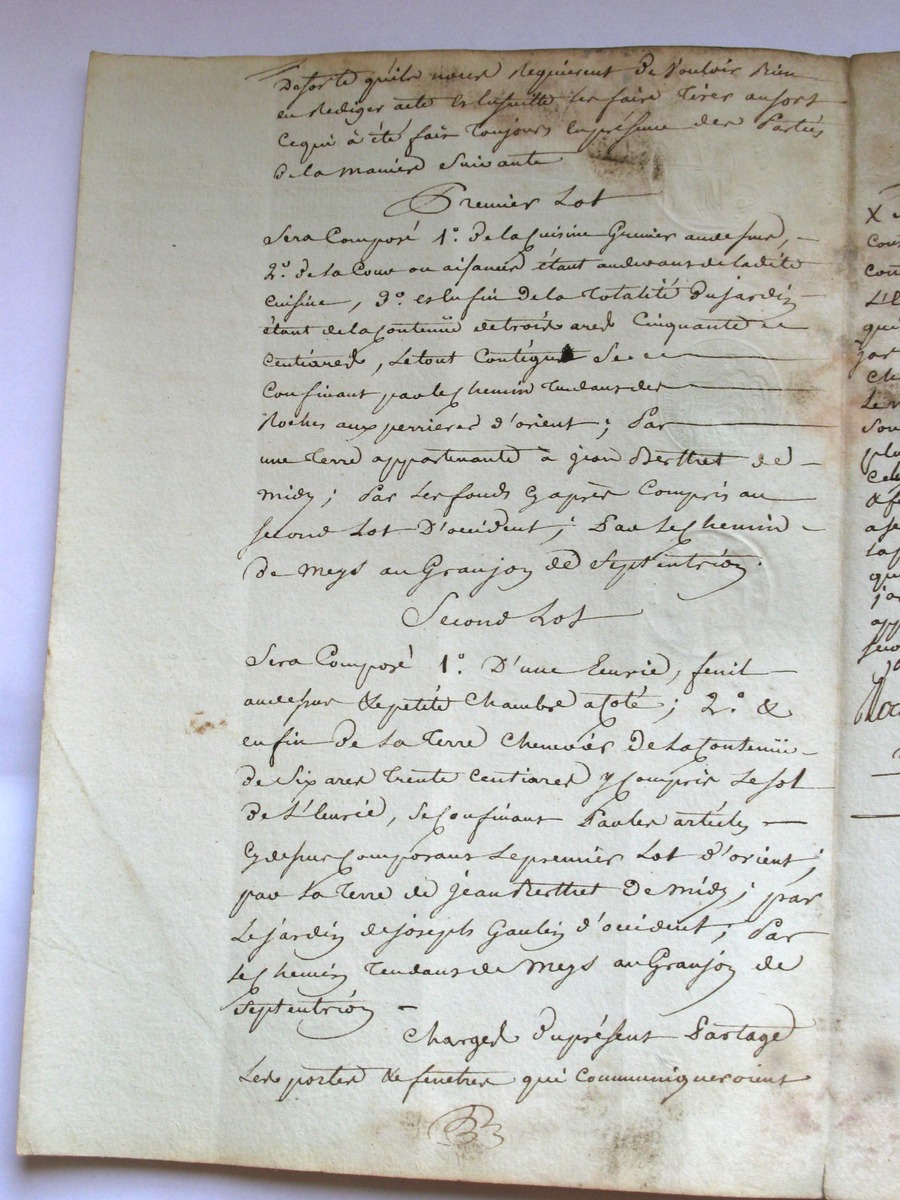 De sorte qu'ils nous Requierent de Vouloir Bien
en Rediger acte & Ensuitte les faire Tirer ausort
Cequi à été fait Toujours En présence des Parties
De la maniere Suivante
Premier Lot
Sera Composé 1°. De la Cuisine Grenier audessus, –
2°. de la Cour ou aisances étant audevant de ladite
cuisine, 3°. & Enfin de la Totalité Du jardin
étant de la Contenüe de trois ares Cinquante
centiares, Le tout Contigus Se
Confinant par le Chemin Tendant des
Roches aux perrieres d'orient; Par
une Terre appartenante à jean Berthet de –
midy; Par Les fonds Cy après Compris au
second Lot D'occident; Par Le Chemin –
De Meys au Granjon de Septentrion.
Second Lot
Sera Composé 1°. D'une Ecurie, fenil
audessus & petite Chambre a Coté; 2°. &
enfin De La Terre Chenevier De la Contenüe –
De Six ares Trente Centiares y Compris Le sol
De L'Ecurie, Se Confinant Par les articles –
Cy dessus Composant Le premier Lot d'orient;
par La Terre de Jean Berthet De midy; par
Le jardin de joseph Goulin d'occident; Par
Le Chemin Tendant de Meys au Granjon de
Septentrion –
Charges Du présent Partage
Les portes & fenetres qui Communiqueroient
X
L'E
qui
jar
che
Le
plu
qu